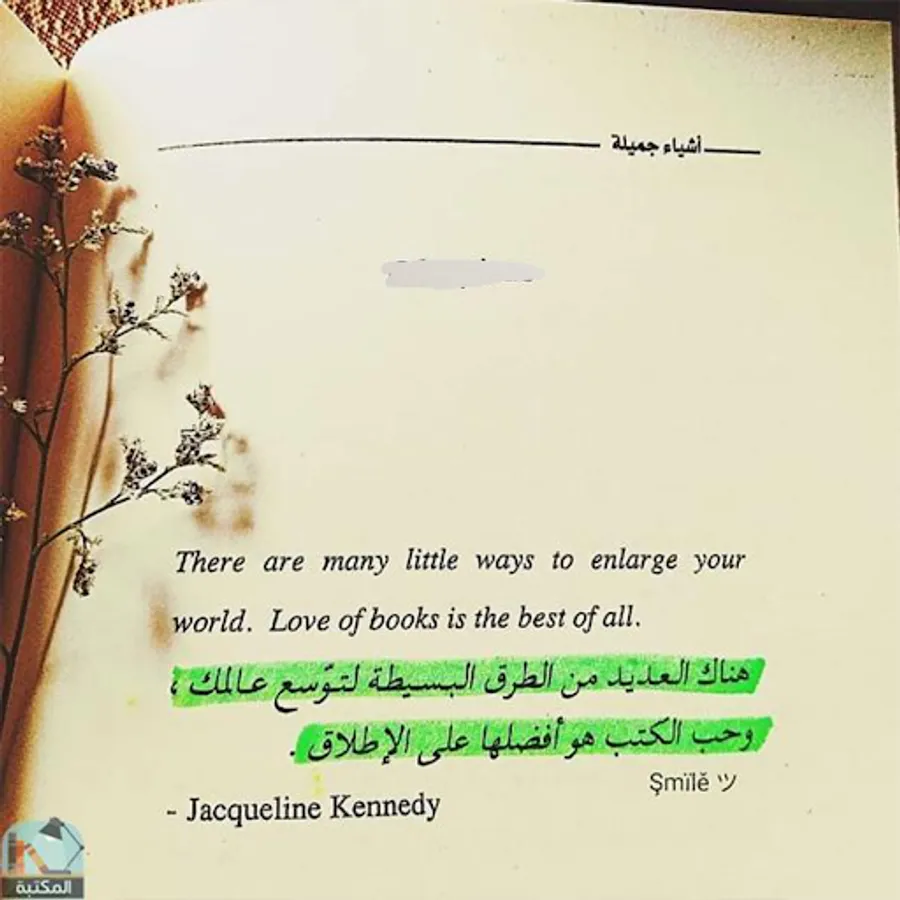 أشياء جميلة
There are many little ways to enlarge your
world. Love of books is the best of all.
هناك العديد من الطرق البسيطة لتوّسع عالمك ،
وحب الكتب هو أفضلها على الإطلاق .
Şmïlě ツ
- Jacqueline Kennedy
المكتبة